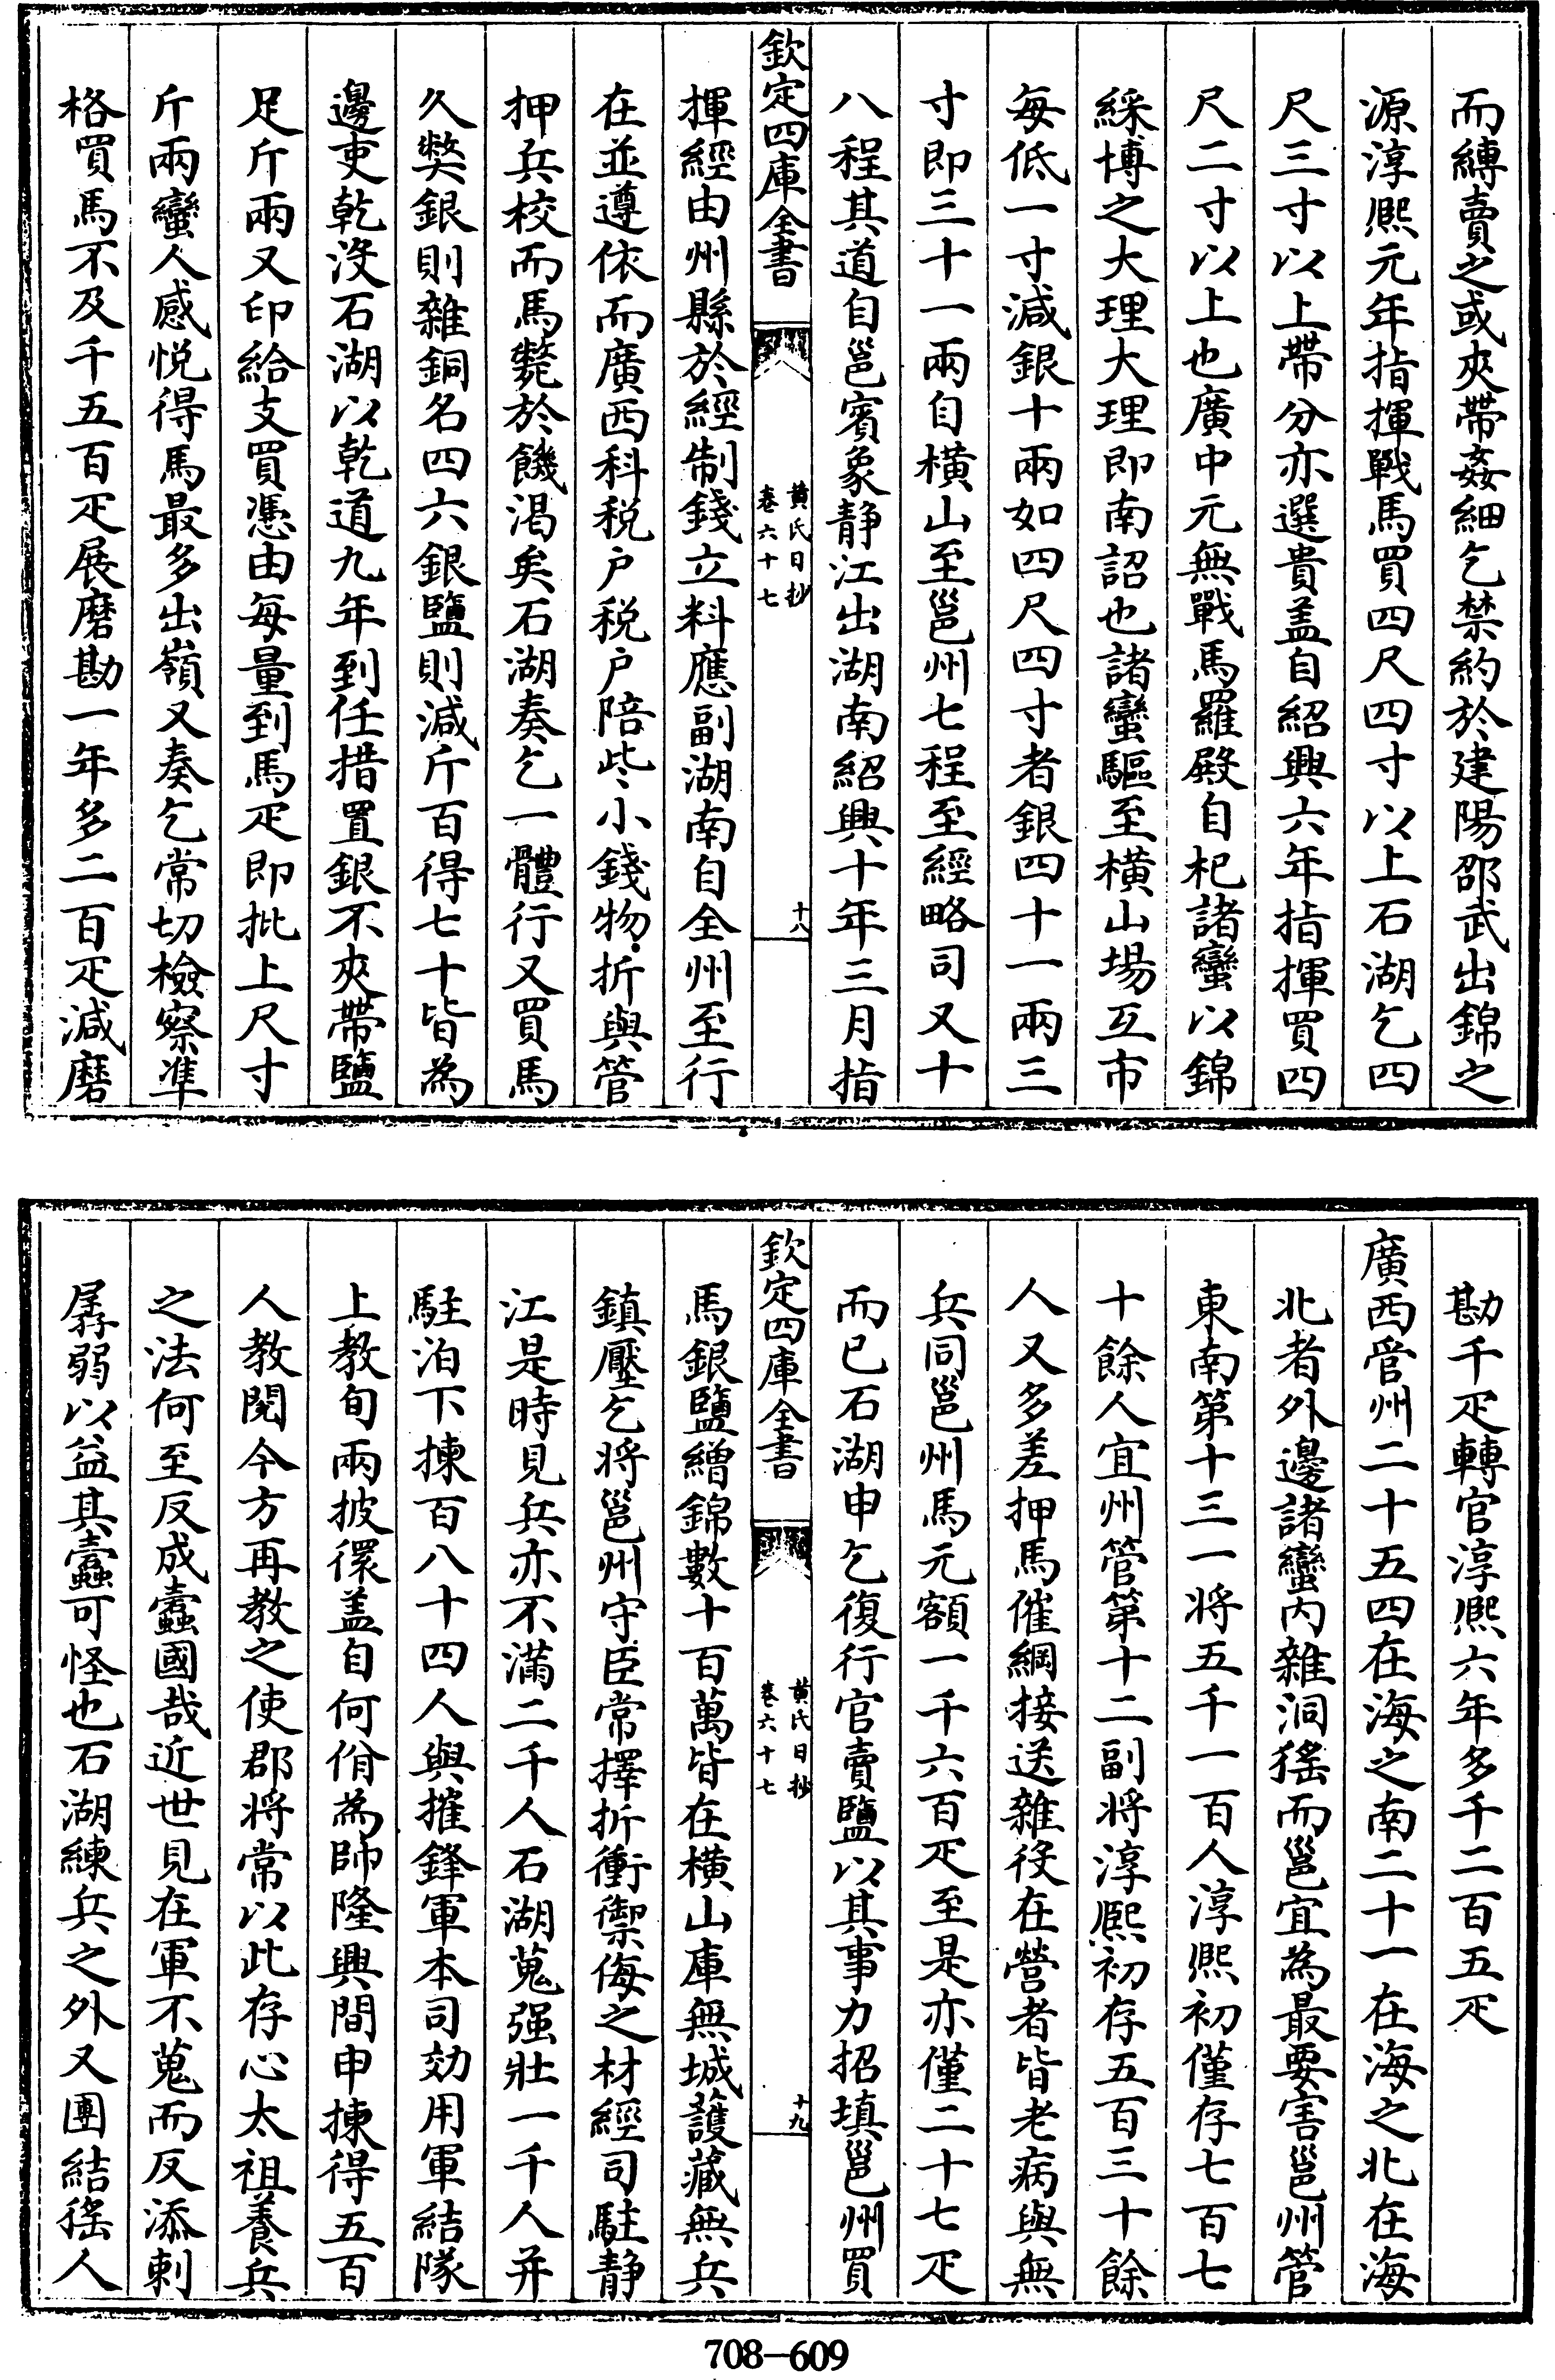 而縛賣之或夾帶姦細乞禁約於建陽邵武出錦之
源淳熙元年指揮戰馬買四尺四寸以上石湖乞四
尺三寸以上帶分亦選貴盖自紹興六年指揮買四
尺二寸以上也廣中元無戰馬羅殿自杞諸蠻以錦
綵博之大理大理即南詔也諸蠻驅至橫山場互市
每低一寸減銀十兩如四尺四寸者銀四十一兩三
寸即三十一兩自橫山至邕州七程至經略司又十
八程其道自邕賓象静江出湖南紹興十年三月指
欽定四庫全書
黄氏日抄
卷六十七
十八
揮經由州縣於經制錢立料應副湖南自全州至行
在並遵依而廣西科税户税户陪些小錢物折與管
押兵校而馬斃於饑渴矣石湖奏乞一體行又買馬
久獘銀則雜銅名四六銀鹽則減斤百得七十皆為
邊吏乾沒石湖以乾道九年到任措置銀不夾帶鹽
足斤兩又印給支買憑由每量到馬疋即批上尺寸
斤兩蠻人感悦得馬最多出嶺又奏乞常切檢察準
格買馬不及千五百疋展磨勘一年多二百疋減磨
勘千疋轉官淳熙六年多千二百五疋
廣西管州二十五四在海之南二十一在海之北在海
北者外邊諸蠻内雜洞猺而邕宜為最要害邕州管
東南第十三一將五千一百人淳熙初僅存七百七
十餘人宜州管第十二副將淳熙初存五百三十餘
人又多差押馬催綱接送雜役在營者皆老病與無
兵同邕州馬元額一千六百疋至是亦僅二十七疋
而已石湖申乞復行官賣鹽以其事力招填邕州買
欽定四庫全書
黄氏日抄
卷六十七
十九
馬銀鹽繒錦數十百萬皆在橫山庫無城護藏無兵
鎮壓乞將邕州守臣常擇折衝禦侮之材經司駐静
江是時見兵亦不滿二千人石湖蒐强壯一千人并
駐泊下揀百八十四人與摧鋒軍本司効用軍結隊
上教旬兩披擐盖自何佾為帥隆興間申揀得五百
人教閱今方再教之使郡將常以此存心太祖養兵
之法何至反成蠹國哉近世見在軍不蒐而反添剌
孱弱以益其蠹可怪也石湖練兵之外又團結猺人
708—609